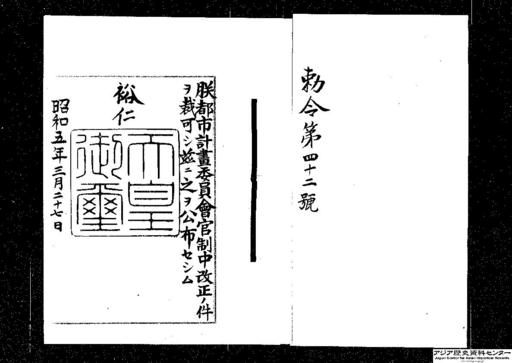 勅令第四十二號
朕都市計畫委員會官制中改正ノ件
ヲ裁可シ茲ニ之ヲ公布セシム
裕仁
天皇
御璽
昭和五年三月二十七日
アジア歴史資料センター
Japan Center for Asian Historical Records